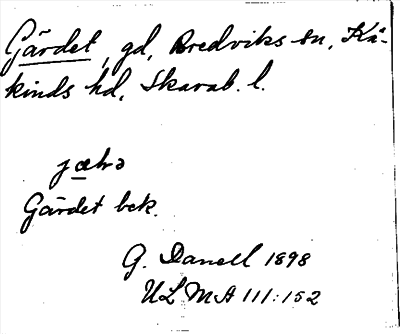 Gärdet, gd, Bredviks sn, Kå-
kinds hd, Skarab. l.
jæhə
Gärdet bek.
G. Danell 1898
ULMA 111:152